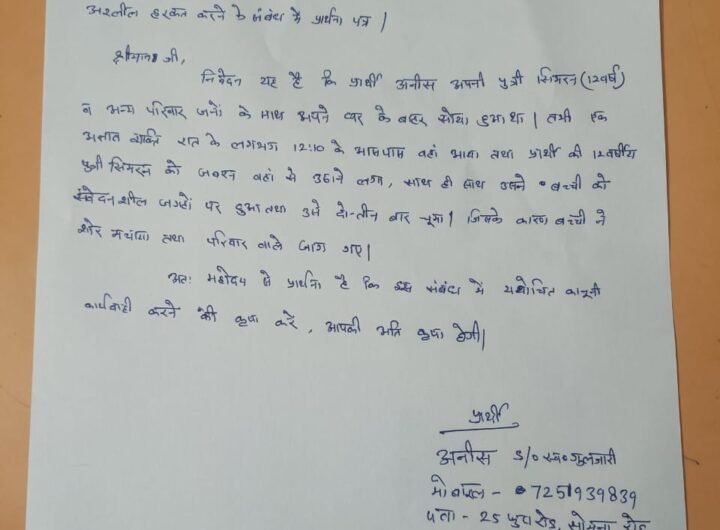 अश्लील हरकत करने के संबंध में प्रार्थना पत्र |
श्रीमान जी,
निवेदन यह है कि प्रार्थी अनीस अपनी पुत्री सिमरन (12वर्ष)
व अन्य परिवार जनों के साथ अपने घर के बाहर सोया हुआ था | तभी एक
अज्ञात व्यक्ति रात के लगभग 12:10 के आसपास वहां आया तथा प्रार्थी की 12 वर्षीय
पुत्री सिमरन को जबरन वहां से उठाने लगा, साथ ही साथ उसने बच्ची को
संवेदनशील जगहों पर छुआ तथा उसे दो-तीन बार चूमा | जिसके कारण बच्ची ने
शोर मचाया तथा परिवार वाले जाग गए |
अतः महोदय से प्रार्थना है कि इस संबंध में यथोचित कानूनी
कार्यवाही करने की कृपा करें, आपकी अति कृपा होगी |
प्रार्थी
अनीस S/o स्व० गुलजारी
मोबाइल - 7251939839
पता - 25 फुटा रोड, सोमना रोड